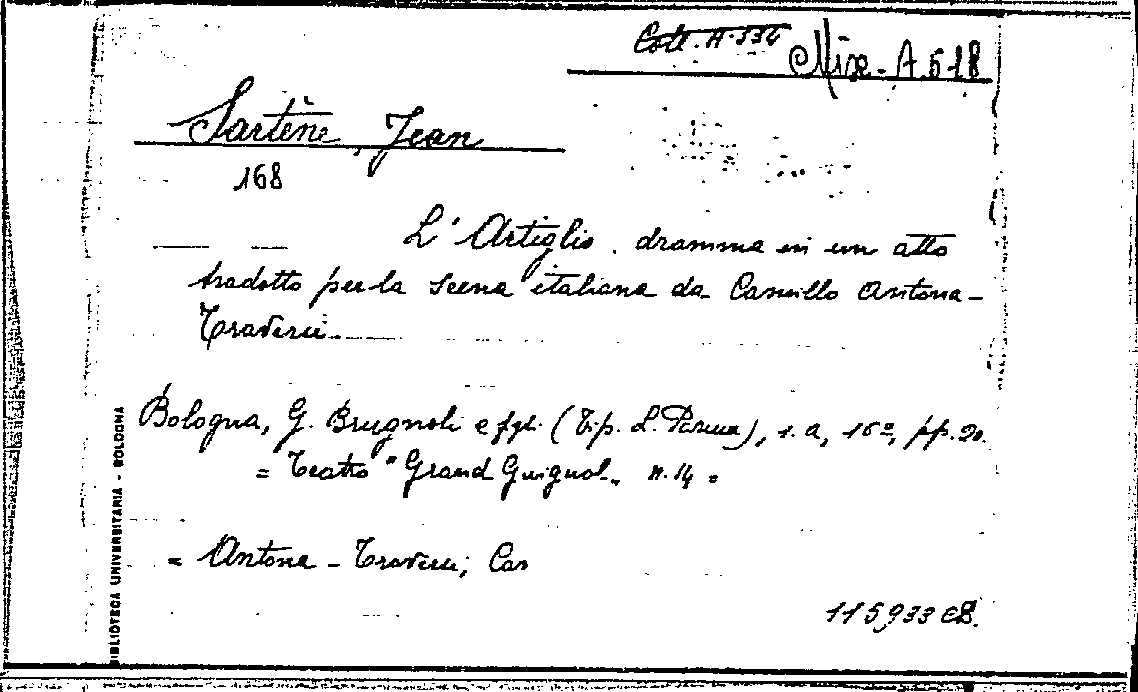 Coll. A. 334
Misc. A. 518
Sartène, Jean
168
L'Artiglio. dramma in un atto
tradotto per la scena italiana da Camillo Antona-
Traversi
Bologna, G. Brugnoli e figl. (Tip. L. Parma), s. a, 16º, pp. 20.
= Teatro "Grand Guignol„ n. 14 =
= Antona - Traversi, Cam
115933 CB.
BIBLIOTECA UNIVERSITARIA - BOLOGNA